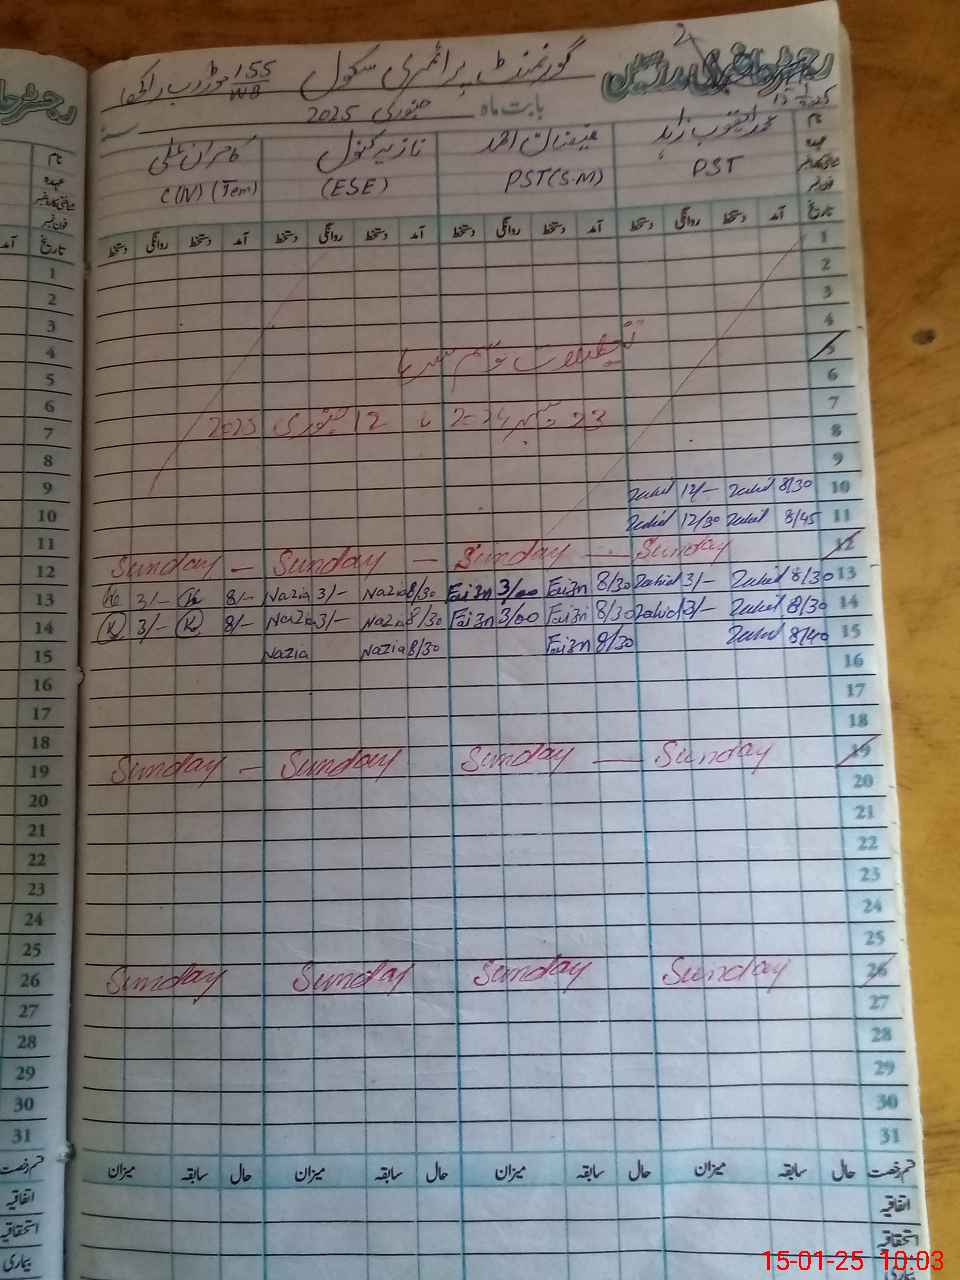 رجسٹر حاضری مدرسین
گورنمنٹ پرائمری سکول 155/WB
بابت ماہ جنوری 2025
نام محمد یعقوب زاہد فیضان احمد نازیہ کنول کامران علی
عہدہ PST PST(S.M) (ESE) C(IV) (Tem)
تاریخ آمد دستخط روانگی دستخط آمد دستخط روانگی دستخط آمد دستخط روانگی دستخط آمد دستخط روانگی دستخط
1
2
3
4
5
تعطیلات موسم سرما
6
7
23 دسمبر 2024 تا 12 جنوری 2025
8
9
10 8/30 Zahid 12/- Zahid
11 8/45 Zahid 12/30 Zahid
12 Sunday - Sunday - Sunday - Sunday
13 8/30 Zahid 3/- Zahid 8/30 Faizn 3/00 Faizn 8/30 Nazia 3/- Nazia 8/- K 3/- K
14 8/30 Zahid 3/- Zahid 8/30 Faizn 3/00 Faizn 8/30 Nazia 3/- Nazia 8/- K 3/- K
15 8/40 Zahid 8/30 Faizn 8/30 Nazia Nazia
16
17
18
19 Sunday - Sunday Sunday - Sunday
20
21
22
23
24
25
26 Sunday Sunday Sunday Sunday
27
28
29
30
31
قسم رخصت حال سابقہ میزان حال سابقہ میزان حال سابقہ میزان حال سابقہ میزان
اتفاقیہ
استحقاقیہ
بیماری
15-01-25 10:03